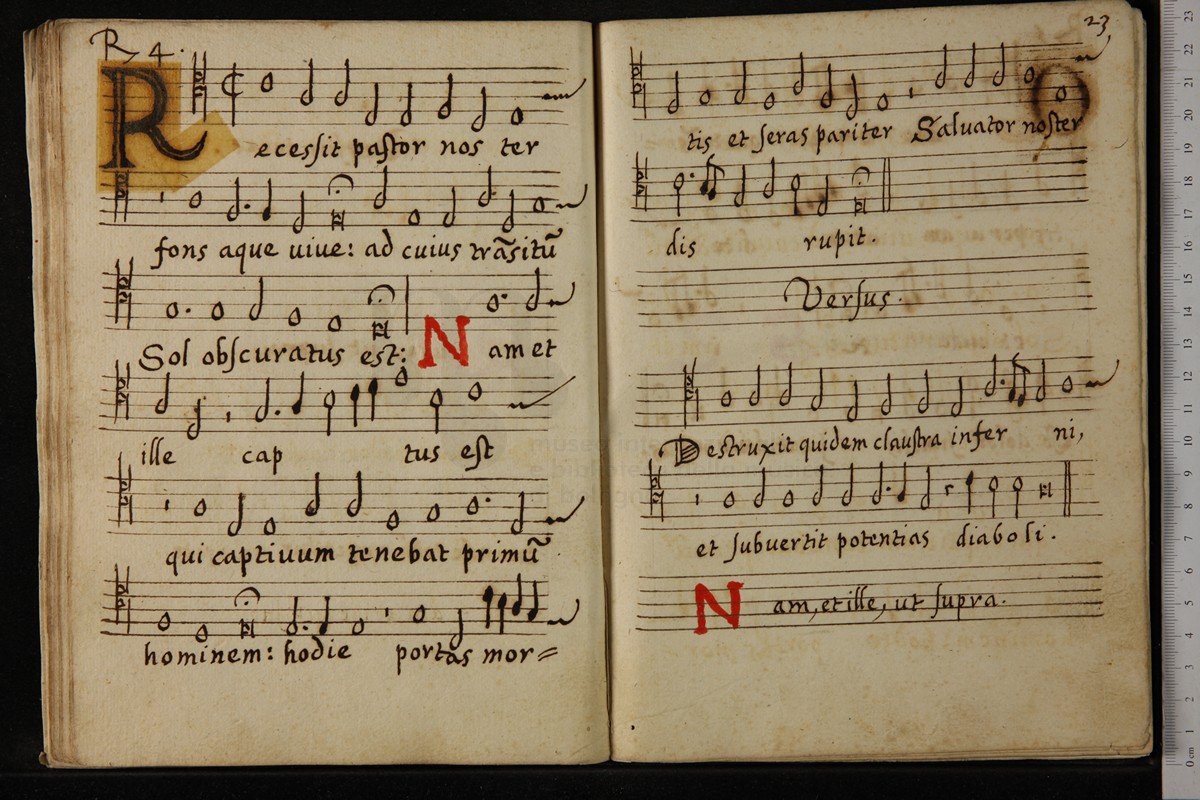 R 4.
Recessit paſtor nos ter
fons aque uiue: ad cuius trãſitũ
Sol obſcuratus est: Nam et
ille cap tus eſt
qui captiuum tenebat primũ
hominem: hodie portas mor=
23
tis et ſeras pariter Saluator noſter
dis rupit.
Verſus.
Destruxit quidem clauſtra infer ni,
et ſubuertit potentias diaboli.
Nam, et ille, ut ſupra.